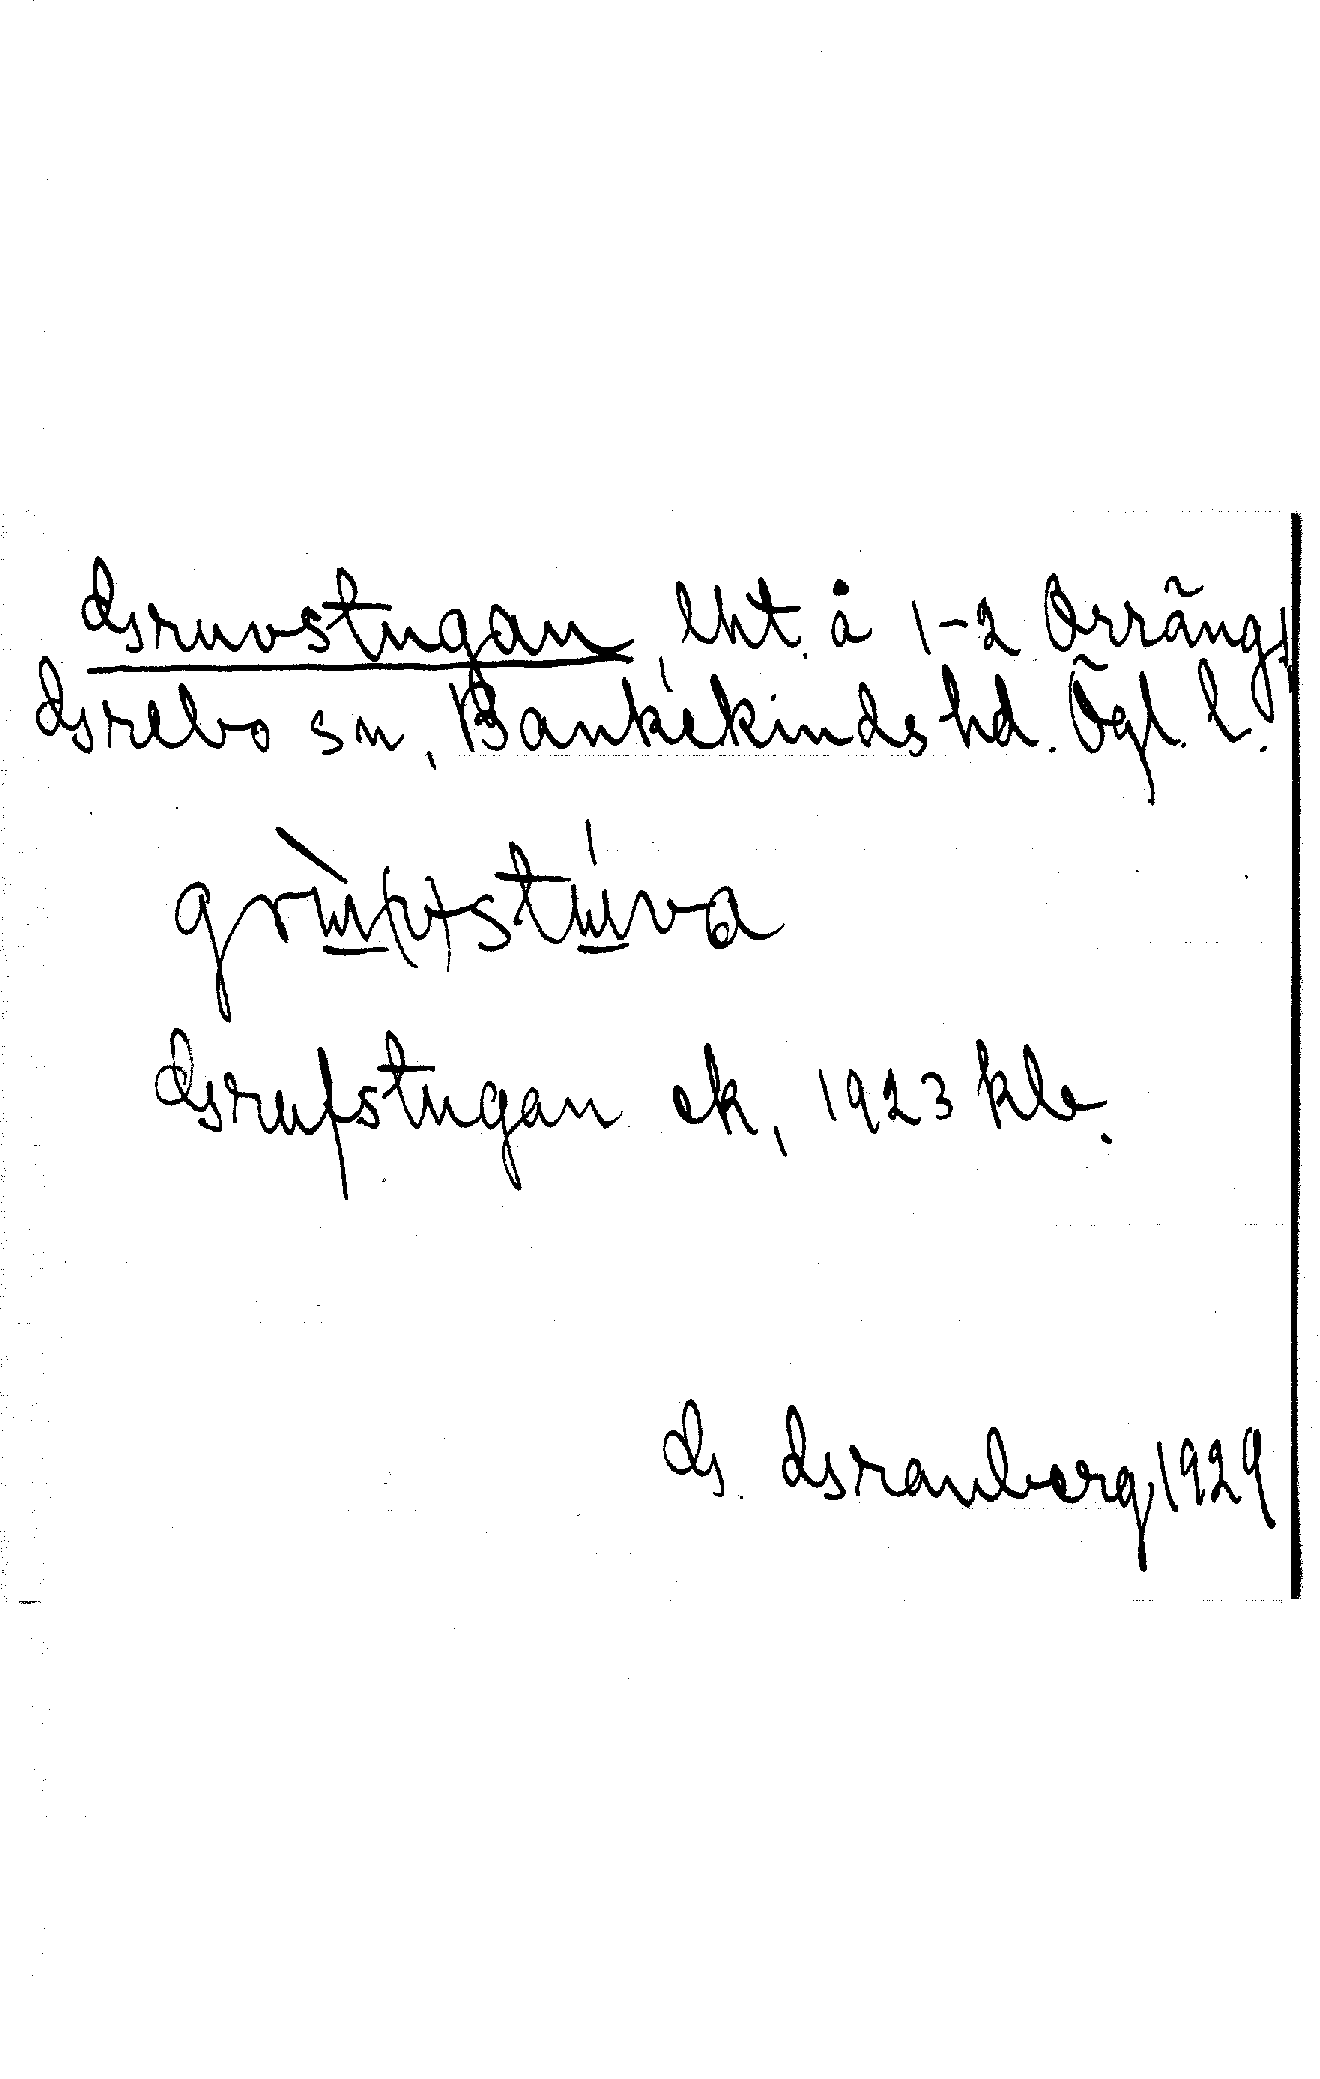 Gruvstugan, lht. å 1-2 Orräng,
Grebo sn, Bankekinds hd. Ögl. l.
grù(v)stúva
Grufstugan ek, 1923 kb.
G. Granberg, 1929